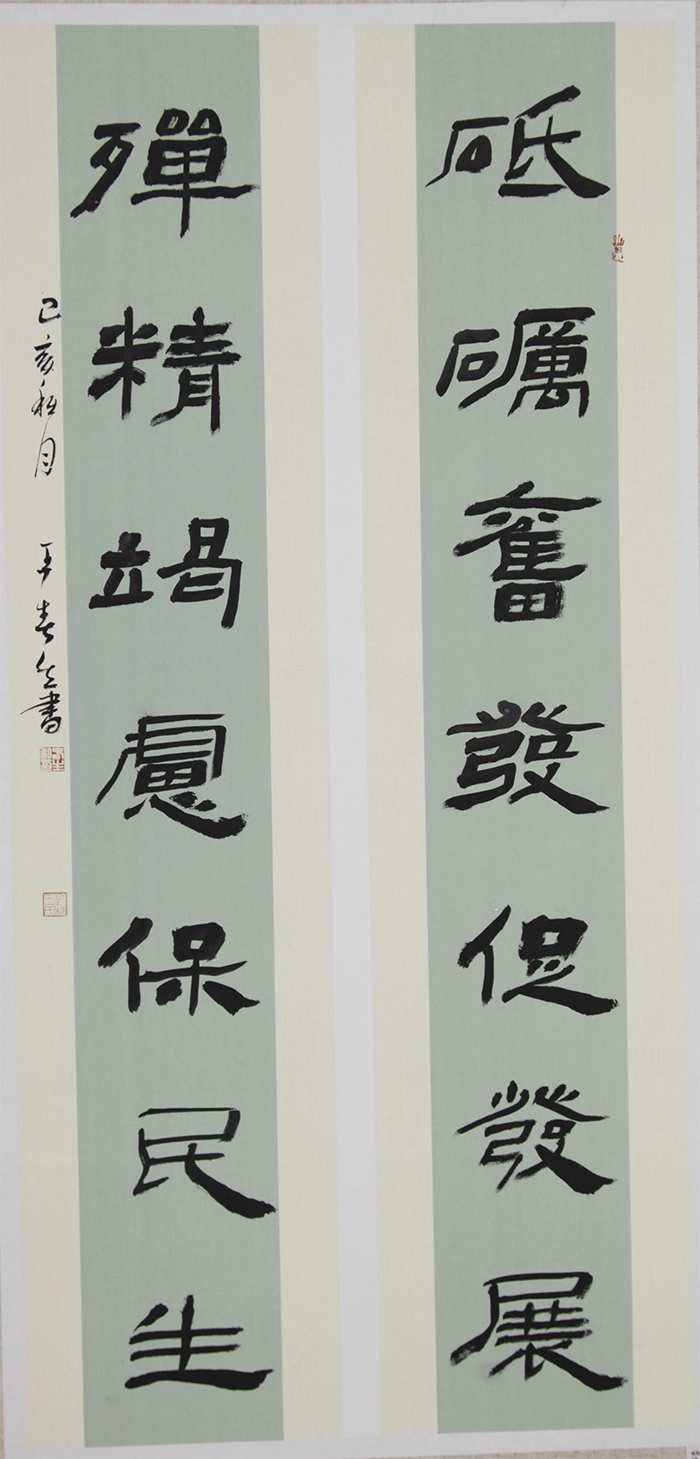 砥礪奮發促發展
殫精竭慮保民生
己亥秋月 王春生書